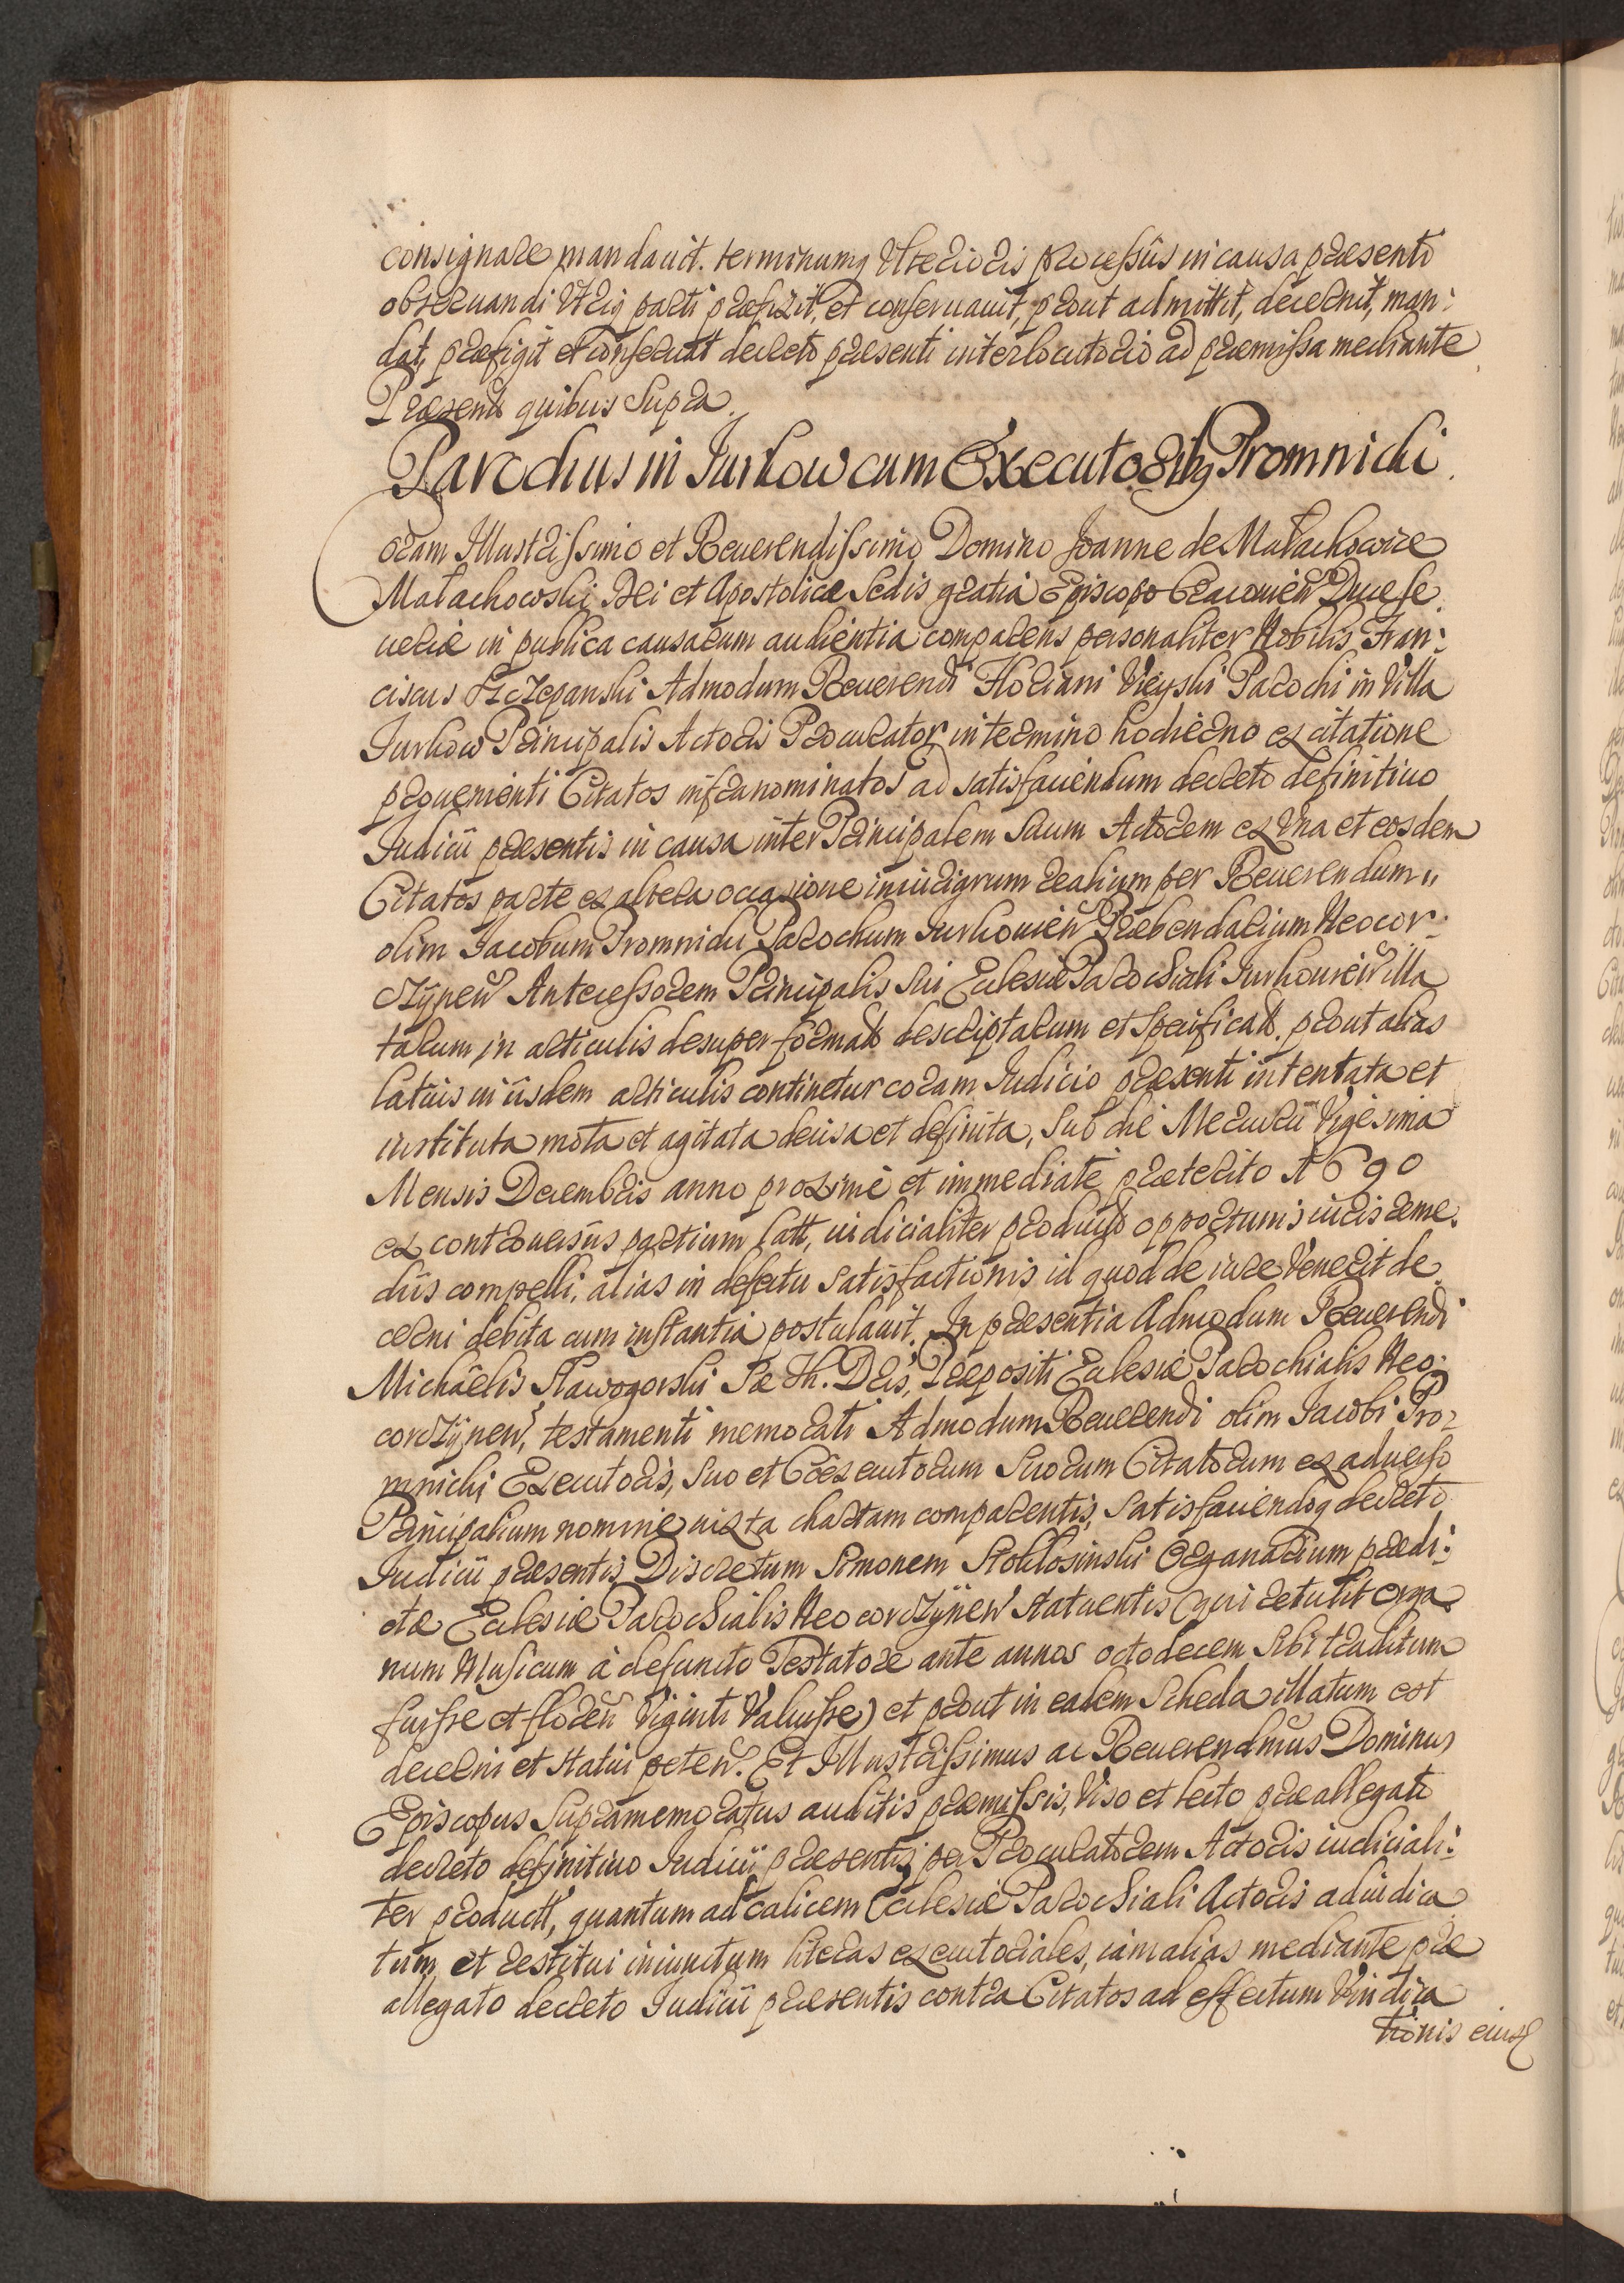 consignare mandauit. terminumq Vlterioris processus in causa praesenti
obseruandi Vtriq parti praefixit, et conseruauit, prout admittit, decernit, man:
dat, praefigit et conseruat decreto praesenti interlocutorio ad praemissa mediante
Praesentt quibus Supra.
Parochus in Jurkow cum Executoribq Promnicki.
Coram Illustrissimo et Reuerendissimo Domino Joanne de Małachowice
Małachowski Dei et Apostolicae Sedis gratia Episcopo Cracouien Duce Se
ueriae in publica causarum audientia comparens personaliter Nobilis Fran:
ciscus Szczepanski Admodum Reuerendi Floriani Wieyski Parochi in Villa
Jurkow Principalis Actoris Procurator in termino hodierno ex citatione
proueniente Citatos infranominatos ad satisfaciendum decreto definitiuo
Iudicii praesentis in causa inter Principalem Suum Actorem ex Vna et eosdem
Citatos parte ex altera occasione iniuriarum realium per Reuerendum
olim Jacobum Promnicki Parochum Jurkouien Praebendarium Neocor:
czynen Antecessorem Principalis Sui Eclesiae Parochiali Jurkouien illa
tarum in articulis desuper formatt descriptarum et Specificatt. prout alias
latius in iisdem articulis continetur coram Iudicio praesenti intentata et
instituta mota et agitata decisa et definita, Sub die Mercurii Vigesima
Mensis Decembris anno proxime et immediate praeterito 1690
ex controuersiis partium latt, iudicialiter productt opportunis iuris reme:
diis compelli, alias in defectu Satisfactionis id quod de iure Venerit de
cerni debita cum instantia postulauit. In praesentia Admodum Reuerendi
Michaelis Stawogorski Sae Th. Dris, Praepositi Eclesiae Parochialis Neo:
corczynen, testamenti memorati Admodum Reuerendi olim Jacobi Pro:
mnicki Executoris, Suo et Coexecutorum Suorum Citatorum ex aduerso
Principalium nomine iuxta chartam comparentis, Satisfaciendoq decreto
Iudicii praesentis Discretum Simonem Stokłosinski Organarium praedi:
ctae Eclesiae Parochialis Neocorczynen Statuentis (qui retulit orga
num Musicum à defuncto Testatore ante annos octodecem Sibi traditum
fuisse et floren Viginti Valuisse) et prout in eadem Scheda illatum est
decerni et Statui peten. Et Illustrissimus ac Reuerendmus Dominus
Episcopus Supramemoratus auditis praemissis, Viso et lecto praeallegato
decreto definitiuo Iudicii praesentis per Procuratorem Actoris iudiciali:
ter productt, quantum ad calicem Eclesiae Parochiali Actoris adiudica
tum et restitui iniunctum literas executoriales, iam alias mediante prae
allegato decreto Iudicii praesentis contra Citatos ad effectum Vindica
tionis eiusd